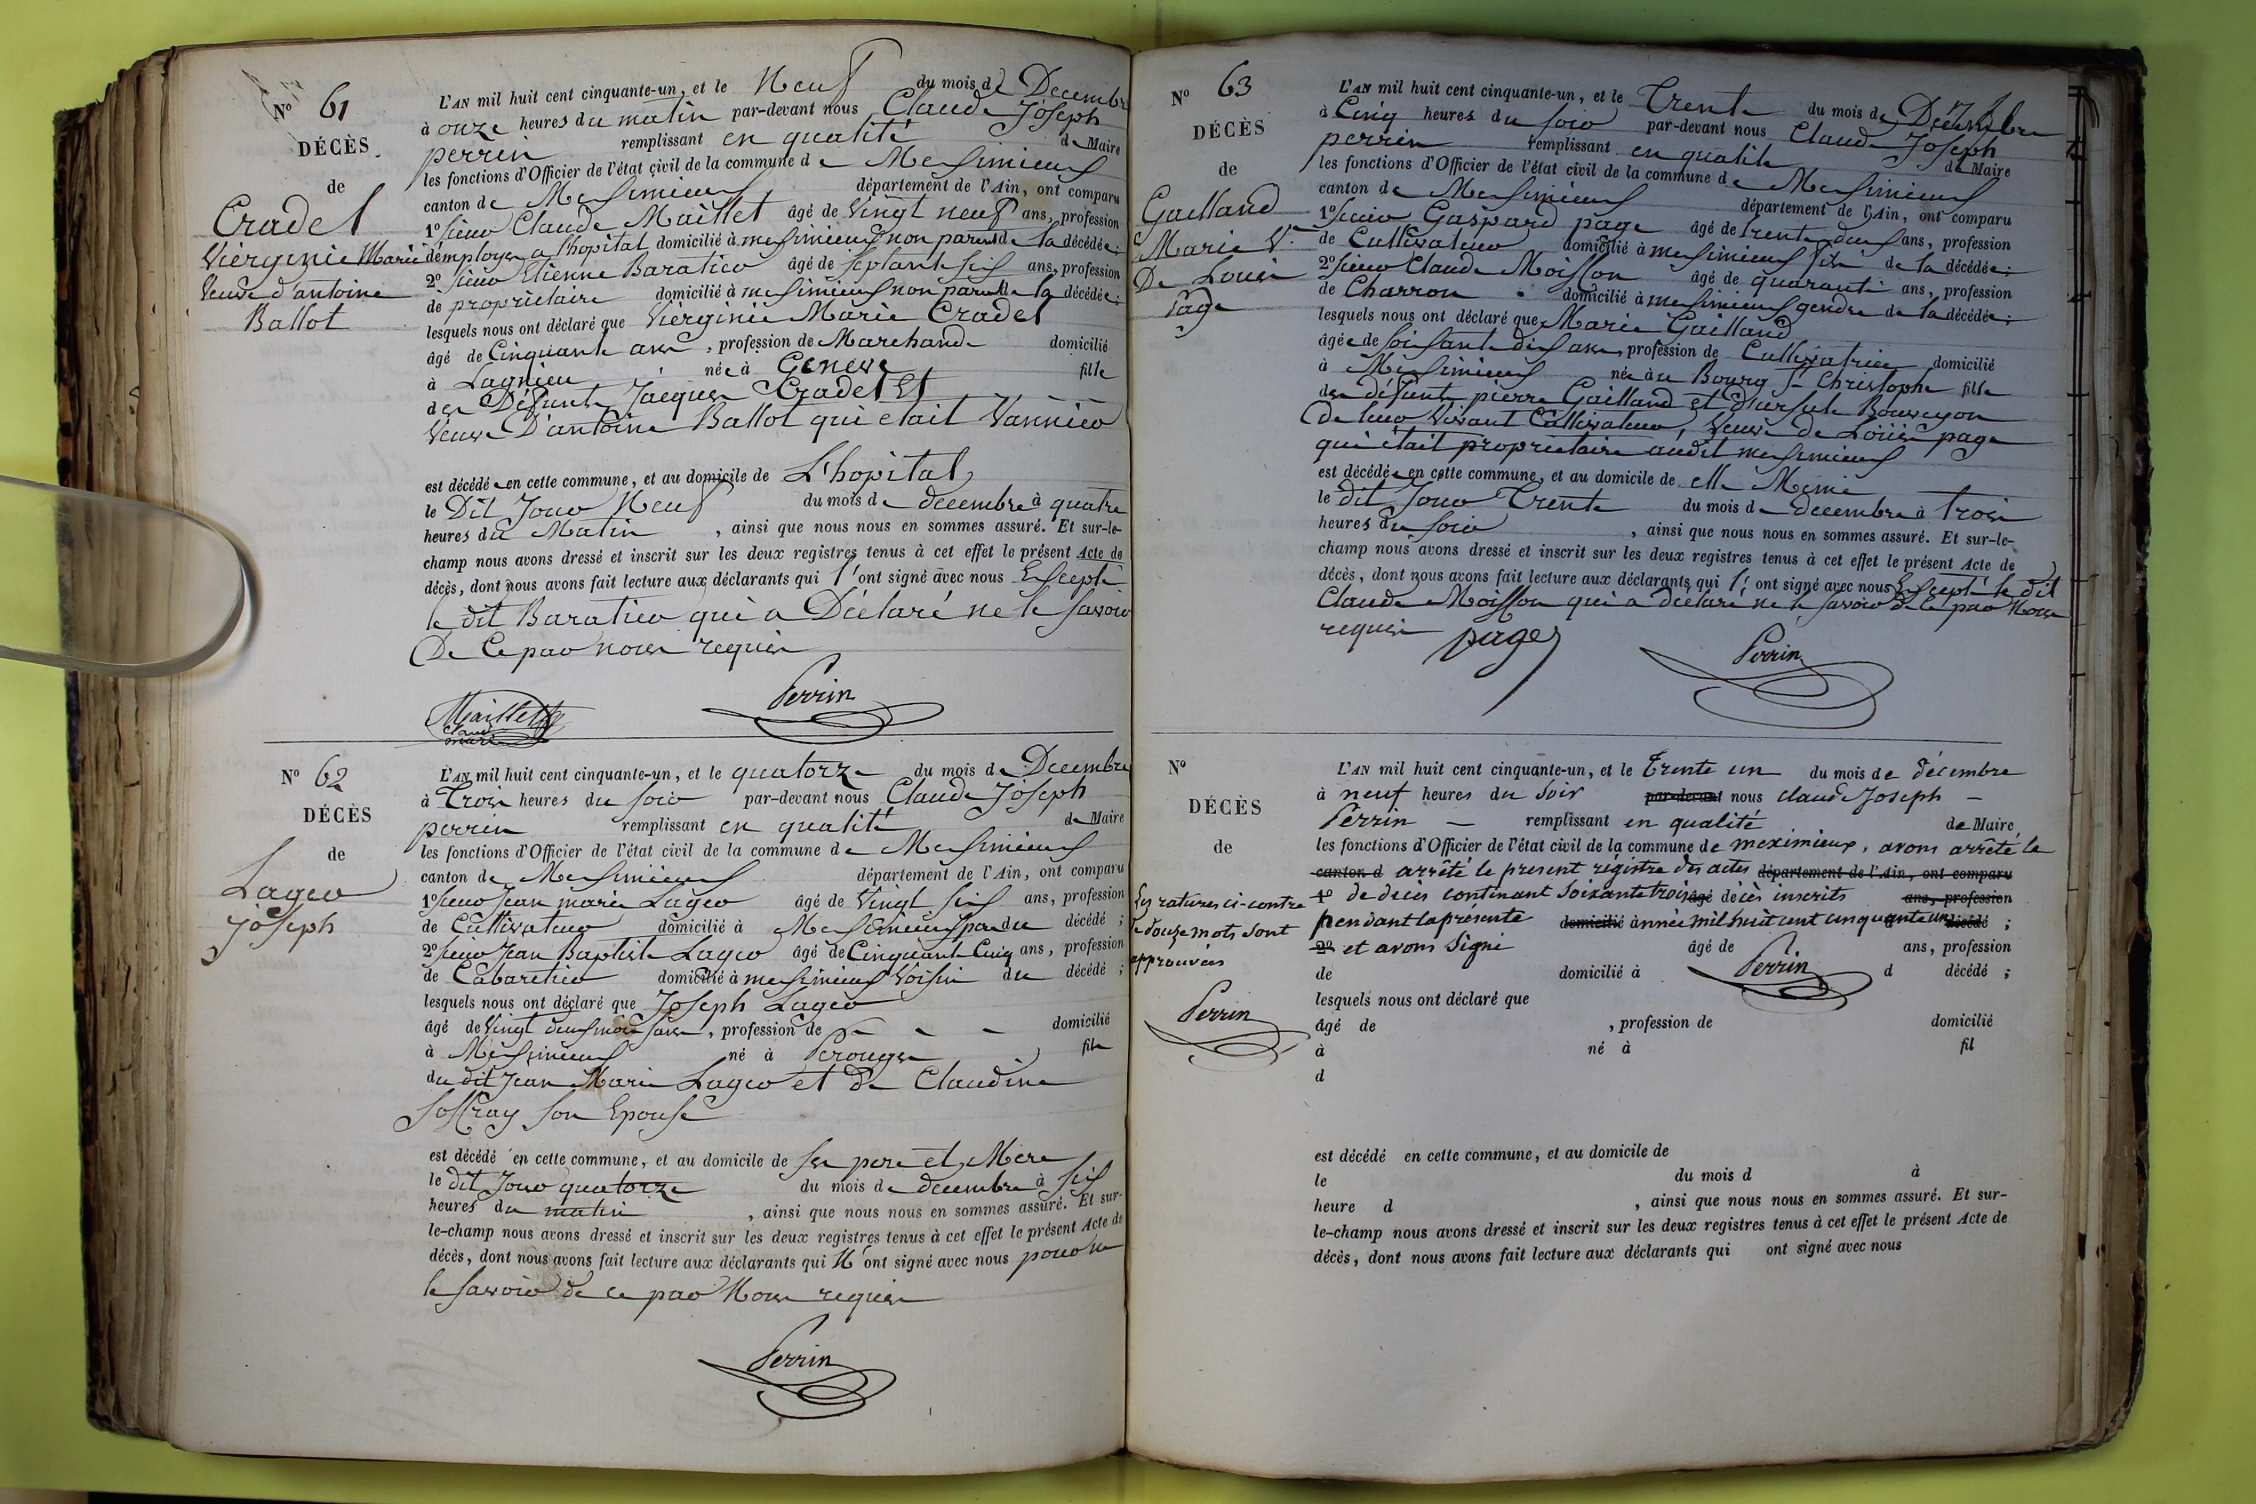 N° 61
DÉCÈS
de
Cradel
Viérginie Marie
Veuve d'antoine
Ballot
L'AN mil huit cent cinquante-un, et le Neuf du mois de Decembre
à onze heures du matin par-devant nous Claude Joseph
perrin remplissant en qualité de Maire
les fonctions d'Officier de l'état civil de la commune de Meximieux
canton de Meximieux département de l'Ain, ont comparu
1° sieur Claude Maillet âgé de Vingt neuf ans, profession
d'employer a l'hopital domicilié à meximieux non parent de la décédée;
2° sieur Etienne Baratier âgé de septante six ans, profession
de propriétaire domicilié à meximieux non parent de la décédée;
lesquels nous ont déclaré que Viérginie Marie Cradel
âgé de Cinquante ans, profession de Marchande domicilié
à Lagnieu née à Geneve fille
des Défunts Jacques Cradel Et
Veuve D'antoine Ballot qui etait Vannier
est décédée en cette commune, et au domicile de L'hopital
le Dit Jour Neuf du mois de decembre à quatre
heures du Matin, ainsi que nous nous en sommes assuré. Et sur-le-
champ nous avons dressé et inscrit sur les deux registres tenus à cet effet le présent Acte de
décès, dont nous avons fait lecture aux déclarants qui l'ont signé avec nous Excepté
le dit Baratier qui a Déclaré ne le savoir
De Ce par nous requis
Maillet
Claude
marie
Perrin
N° 62
DÉCÈS
de
Lager
Joseph
L'AN mil huit cent cinquante-un, et le quatorze du mois de Decembre
à Trois heures du soir par-devant nous Claude Joseph
perrin remplissant en qualité de Maire
les fonctions d'Officier de l'état civil de la commune de Meximieux
canton de Meximieux département de l'Ain, ont comparu
1° sieur Jean marie Lager âgé de Vingt six ans, profession
de Cultivateur domicilié à Meximieux pere du décédé;
2° sieur Jean Baptiste Lager âgé de Cinquante Cinq ans, profession
de Cabaretier domicilié à meximieux Voisin du décédé;
lesquels nous ont déclaré que Joseph Lager
âgé de Vingt deux mois, profession de - - - domicilié
à Meximieux né à Perouges fils
du dit Jean Marie Lager et De Claudine
Joffray son Epouse
est décédé en cette commune, et au domicile de ses pere et Mere
le dit Jour quatorze du mois de decembre à six
heures du matin, ainsi que nous nous en sommes assuré. Et sur-
le-champ nous avons dressé et inscrit sur les deux registres tenus à cet effet le présent Acte de
décès, dont nous avons fait lecture aux déclarants qui N'ont signé avec nous pour ne
le savoir de ce par Nous requis
Perrin
N° 63
DÉCÈS
de
Gailland
Marie V.
De Louis
Page
L'AN mil huit cent cinquante-un, et le Trente du mois de Décembre
à Cinq heures du soir par-devant nous Claude Joseph
perrin remplissant en qualité de Maire
les fonctions d'Officier de l'état civil de la commune de Meximieux
canton de Meximieux département de l'Ain, ont comparu
1° sieur Gaspard page âgé de trente deux ans, profession
de Cultivateur domicilié à meximieux fils de la décédée;
2° sieur Claude Moisson âgé de quarante ans, profession
de Charron domicilié à meximieux gendre de la décédée;
lesquels nous ont déclaré que Marie Gailland
âgée de soixante dix ans, profession de Cultivatrice domicilié
à Meximieux née au Bourg St Christophe fille
des défunts pierre Gailland et d'ursule Bourgeon
De leur Vivant Cultivateur, Veuve de Loüis page
qui était proprietaire audit meximieux
est décédée en cette commune, et au domicile de elle Meme
le dit Jour Trente du mois de decembre à trois
heures du soir, ainsi que nous nous en sommes assuré. Et sur-le-
champ nous avons dressé et inscrit sur les deux registres tenus à cet effet le présent Acte de
décès, dont nous avons fait lecture aux déclarants qui l'ont signé avec nous Excepté le dit
Claude Moisson qui a déclaré ne le savoir de ce par Nous
requis page
Perrin
N°
DÉCÈS
de
Les ratures ci-contre
de douze mots sont
approuvées
Perrin
L'AN mil huit cent cinquante-un, et le Trente un du mois de décembre
à neuf heures du Soir par-devant nous Claude Joseph -
Perrin - remplissant en qualité de Maire
les fonctions d'Officier de l'état civil de la commune de meximieux, avons arrêté le
canton d arrêté le present régistre des actes département de l'Ain, ont comparu
1° de décès contenant soixante trois âgé décès inscrits ans, profession
pendant la présente domicilié année mil huit cent cinquante un décédé ;
2° et avons Signé âgé de ans, profession
de domicilié à Perrin d décédé ;
lesquels nous ont déclaré que
âgé de , profession de domicilié
à né à fil
d
est décédé en cette commune, et au domicile de
le du mois d à
heure d , ainsi que nous nous en sommes assuré. Et sur-
le-champ nous avons dressé et inscrit sur les deux registres tenus à cet effet le présent Acte de
décès, dont nous avons fait lecture aux déclarants qui ont signé avec nous